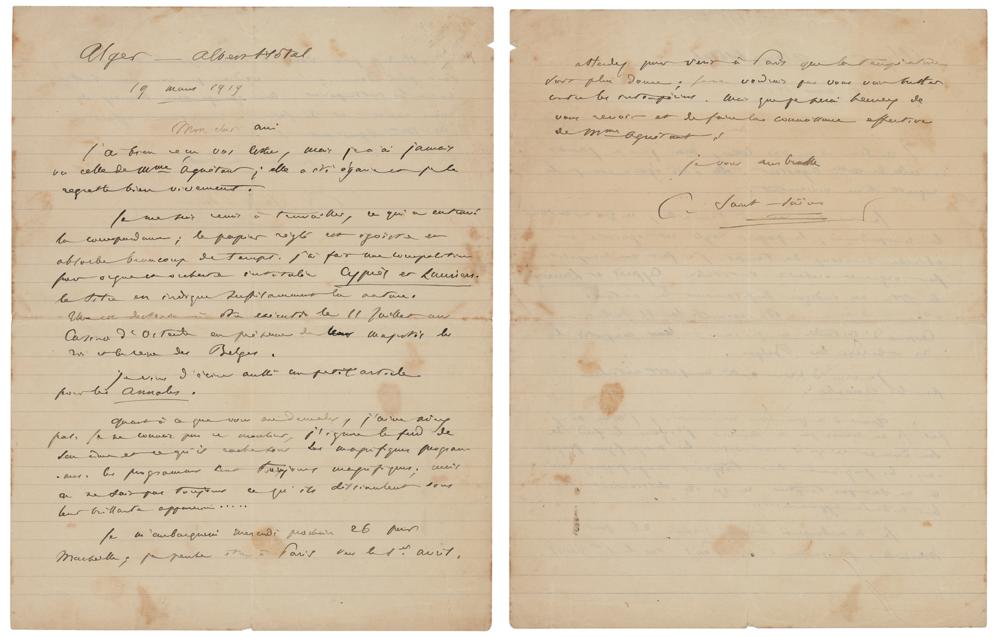 Alger — Albert Hôtel
19 mars 1919
Mon cher ami
J'ai bien reçu vos lettre, mais je n'ai jamais
vu celle de Mme Aguétant ; elle a été égarée et je le
regrette bien vivement.
Je me suis remis à travailler, ce qui a entravé
la correspondance ; le papier réglé est égoïste et
absorbe beaucoup de temps. J'ai fait une composition
pour orgue et orchestre intitulée Cyprès et Lauriers.
Le titre en indique suffisamment la nature.
être exécutée le 11 Juillet au
Casino d'Ostende en présence de leurs majestés le
roi et la reine des Belges.
Je viens d'écrire aussi un petit article
pour les Annales.
Quant à ce que vous me demandez, j'aime mieux
pas. Je ne connais pas ce monsieur, j'ignore le fond de
son âme et ce qu'il cache sous les magnifiques program-
mes. Les programmes sont toujours magnifiques ; mais
on ne sait pas toujours ce qu'ils dissimulent sous
leur brillante apparence.....
Je m'embarquerai mercredi prochain 26 pour
Marseille ; je pense être à Paris vers le 1er avril.
attendez pour venir à Paris que la température
soit plus douce ; je ne voudrais pas vous voir lutter
contre les intempéries. Mais que je serai heureux de
vous revoir et de faire la connaissance effective
de Mme Aguétant !
Je vous embrasse
C. Saint-Saëns